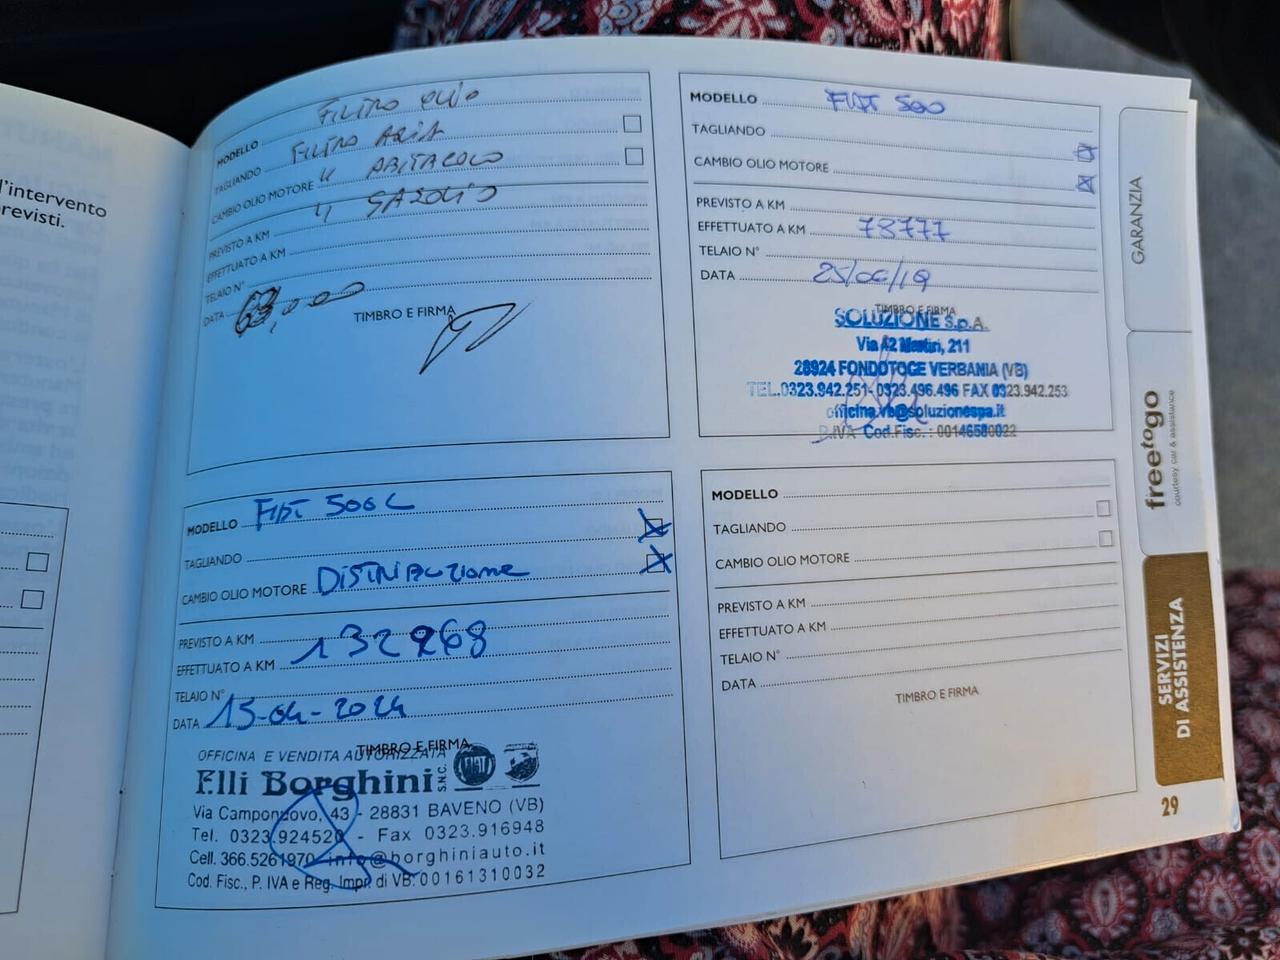 l'intervento
previsti.
MODELLO FILTRO OLIO
TAGLIANDO FILTRO ARIA
CAMBIO OLIO MOTORE " ABITACOLO
" GASOLIO
PREVISTO A KM
EFFETTUATO A KM
TELAIO N°
DATA
TIMBRO E FIRMA
MODELLO FIAT 500
TAGLIANDO
CAMBIO OLIO MOTORE
PREVISTO A KM
EFFETTUATO A KM 73777
TELAIO N°
DATA 25/06/19
TIMBRO E FIRMA
SOLUZIONE S.p.A.
Via 42 Martiri, 211
28924 FONDOTOCE VERBANIA (VB)
TEL.0323.942.251- 0323.496.496 FAX 0323.942.253
officina.vb@soluzionespa.it
P.IVA Cod.Fisc. : 00146580022
MODELLO FIAT 500L
TAGLIANDO
CAMBIO OLIO MOTORE DISTRIBUZIONE
PREVISTO A KM
EFFETTUATO A KM 132268
TELAIO N°
DATA 15-04-2024
TIMBRO E FIRMA
OFFICINA E VENDITA AUTORIZZATA
F.lli Borghini S.N.C.
FIAT
Via Camponuovo, 43 - 28831 BAVENO (VB)
Tel. 0323.924520 - Fax 0323.916948
Cell. 366.5261970 info@borghiniauto.it
Cod. Fisc., P. IVA e Reg. Impr. di VB: 00161310032
MODELLO
TAGLIANDO
CAMBIO OLIO MOTORE
PREVISTO A KM
EFFETTUATO A KM
TELAIO N°
DATA
TIMBRO E FIRMA
GARANZIA
freetogo
courtesy car & assistance
SERVIZI
DI ASSISTENZA
29